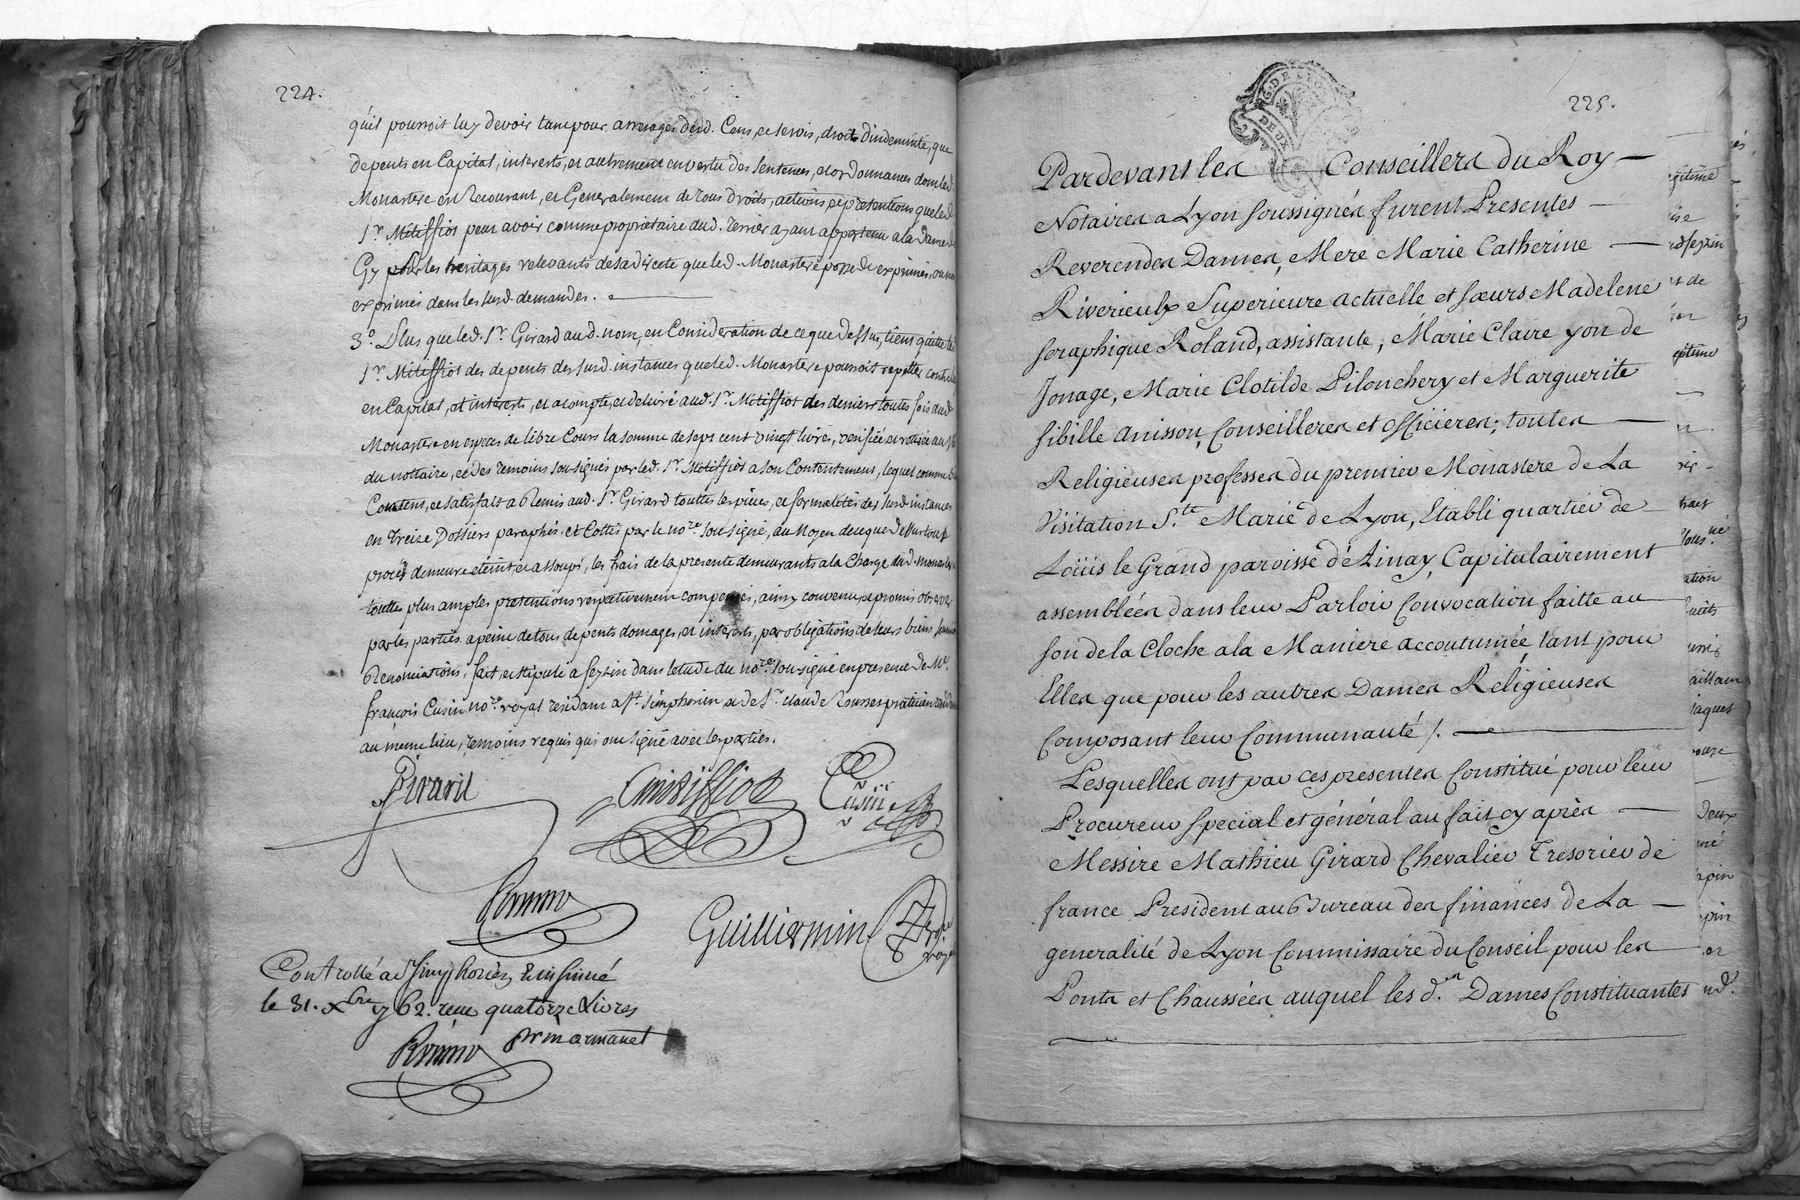 224.
qu'il pourroit luy devoir tant pour arrerages desd. Cens, et servis, droits d'indemnité, que
depents en Capital, interets, et autrement en vertu des sentences, et ordonnances dont led.
Monastere est Recourant, et Generalement de tous droits, actions, et pretentions que led.
Sr. Mitiffiot peut avoir comme proprietaire aud. Terrier ayant appartenu a la Dame de
Gy pour les heritages relevants de sa directe que led. Monastere possede exprimés, ou non
exprimés dans les susd. demandes.
3°. Plus que led. Sr. Girard aud. nom, en Consideration de ce que dessus, tient quitte led.
Sr. Mitiffiot des depents des susd. instances que led. Monastere pourroit repetter contre luy
en Capital, et interets, et a compté, et delivré aud. Sr. Mitiffiot des deniers toutes fois dud.
Monastere en especes de libre Cours la somme de sept cent vingt livres, verifiée et retirée au
du nottaire, et des temoins soussignés par led. Sr. Mitiffiot a son Contentement, lequel comme
Content, et satisfait a Remis aud. Sr. Girard touttes les pieces, et formalités des susd. instances
en treize Dossiers paraphés et Cottés par le nore. soussigné, au Moyen de ce que dessus tout
procés demeure éteint et assoupi, les frais de la presente demeurants a la Charge dud. monastere
touttes plus amples pretentions respectivement compensées, ainsy convenu, et promis observer
par les parties a peine de tous depents domages, et interets, par obligations de leurs biens
Renonciations, fait, et stipulé a feyzin dans l'etude du nore. soussigné en presence de Me.
françois Cusin nore. royal residant a St. simphorien et de Sr. claude Rousset praticien
au même lieu, temoins requis qui ont signé avec les parties.
Girard Mitiffiot Cusin
Guilliermin
Controllé a St Simphorien & insinué
le 31. Xbre 1762. recu quatorze Livres
225.
Pardevant les Conseillers du Roy
Notaires a Lyon soussignés furent Presentes
Reverendes Dames, Mere Marie Catherine
Riverieulx Superieure actuelle et sœurs Madelene
seraphique Roland, assistante, Marie Claire yon de
Jonage, Marie Clotilde Pilonchery et Marguerite
Sibille Anisson, Conseilleres et officieres; toutes
Religieuses professes du premier Monastere de La
Visitation Ste. Marie de Lyon, Etabli quartier de
Loüis le Grand paroisse d'Ainay, Capitulairement
assemblées dans leur Parloir Convocation faitte au
son de la Cloche a la Maniere accoutumée, tant pour
Elles que pour les autres Dames Religieuses
Composant leur Communauté /.
Lesquelles ont par ces presentes Constitué pour leur
Procureur special et général au fait cy après
Messire Mathieu Girard Chevalier Tresorier de
france President au Bureau des finances de La
generalité de Lyon Commissaire du Conseil pour les
Ponts et Chaussées auquel les d.es Dames Constituantes